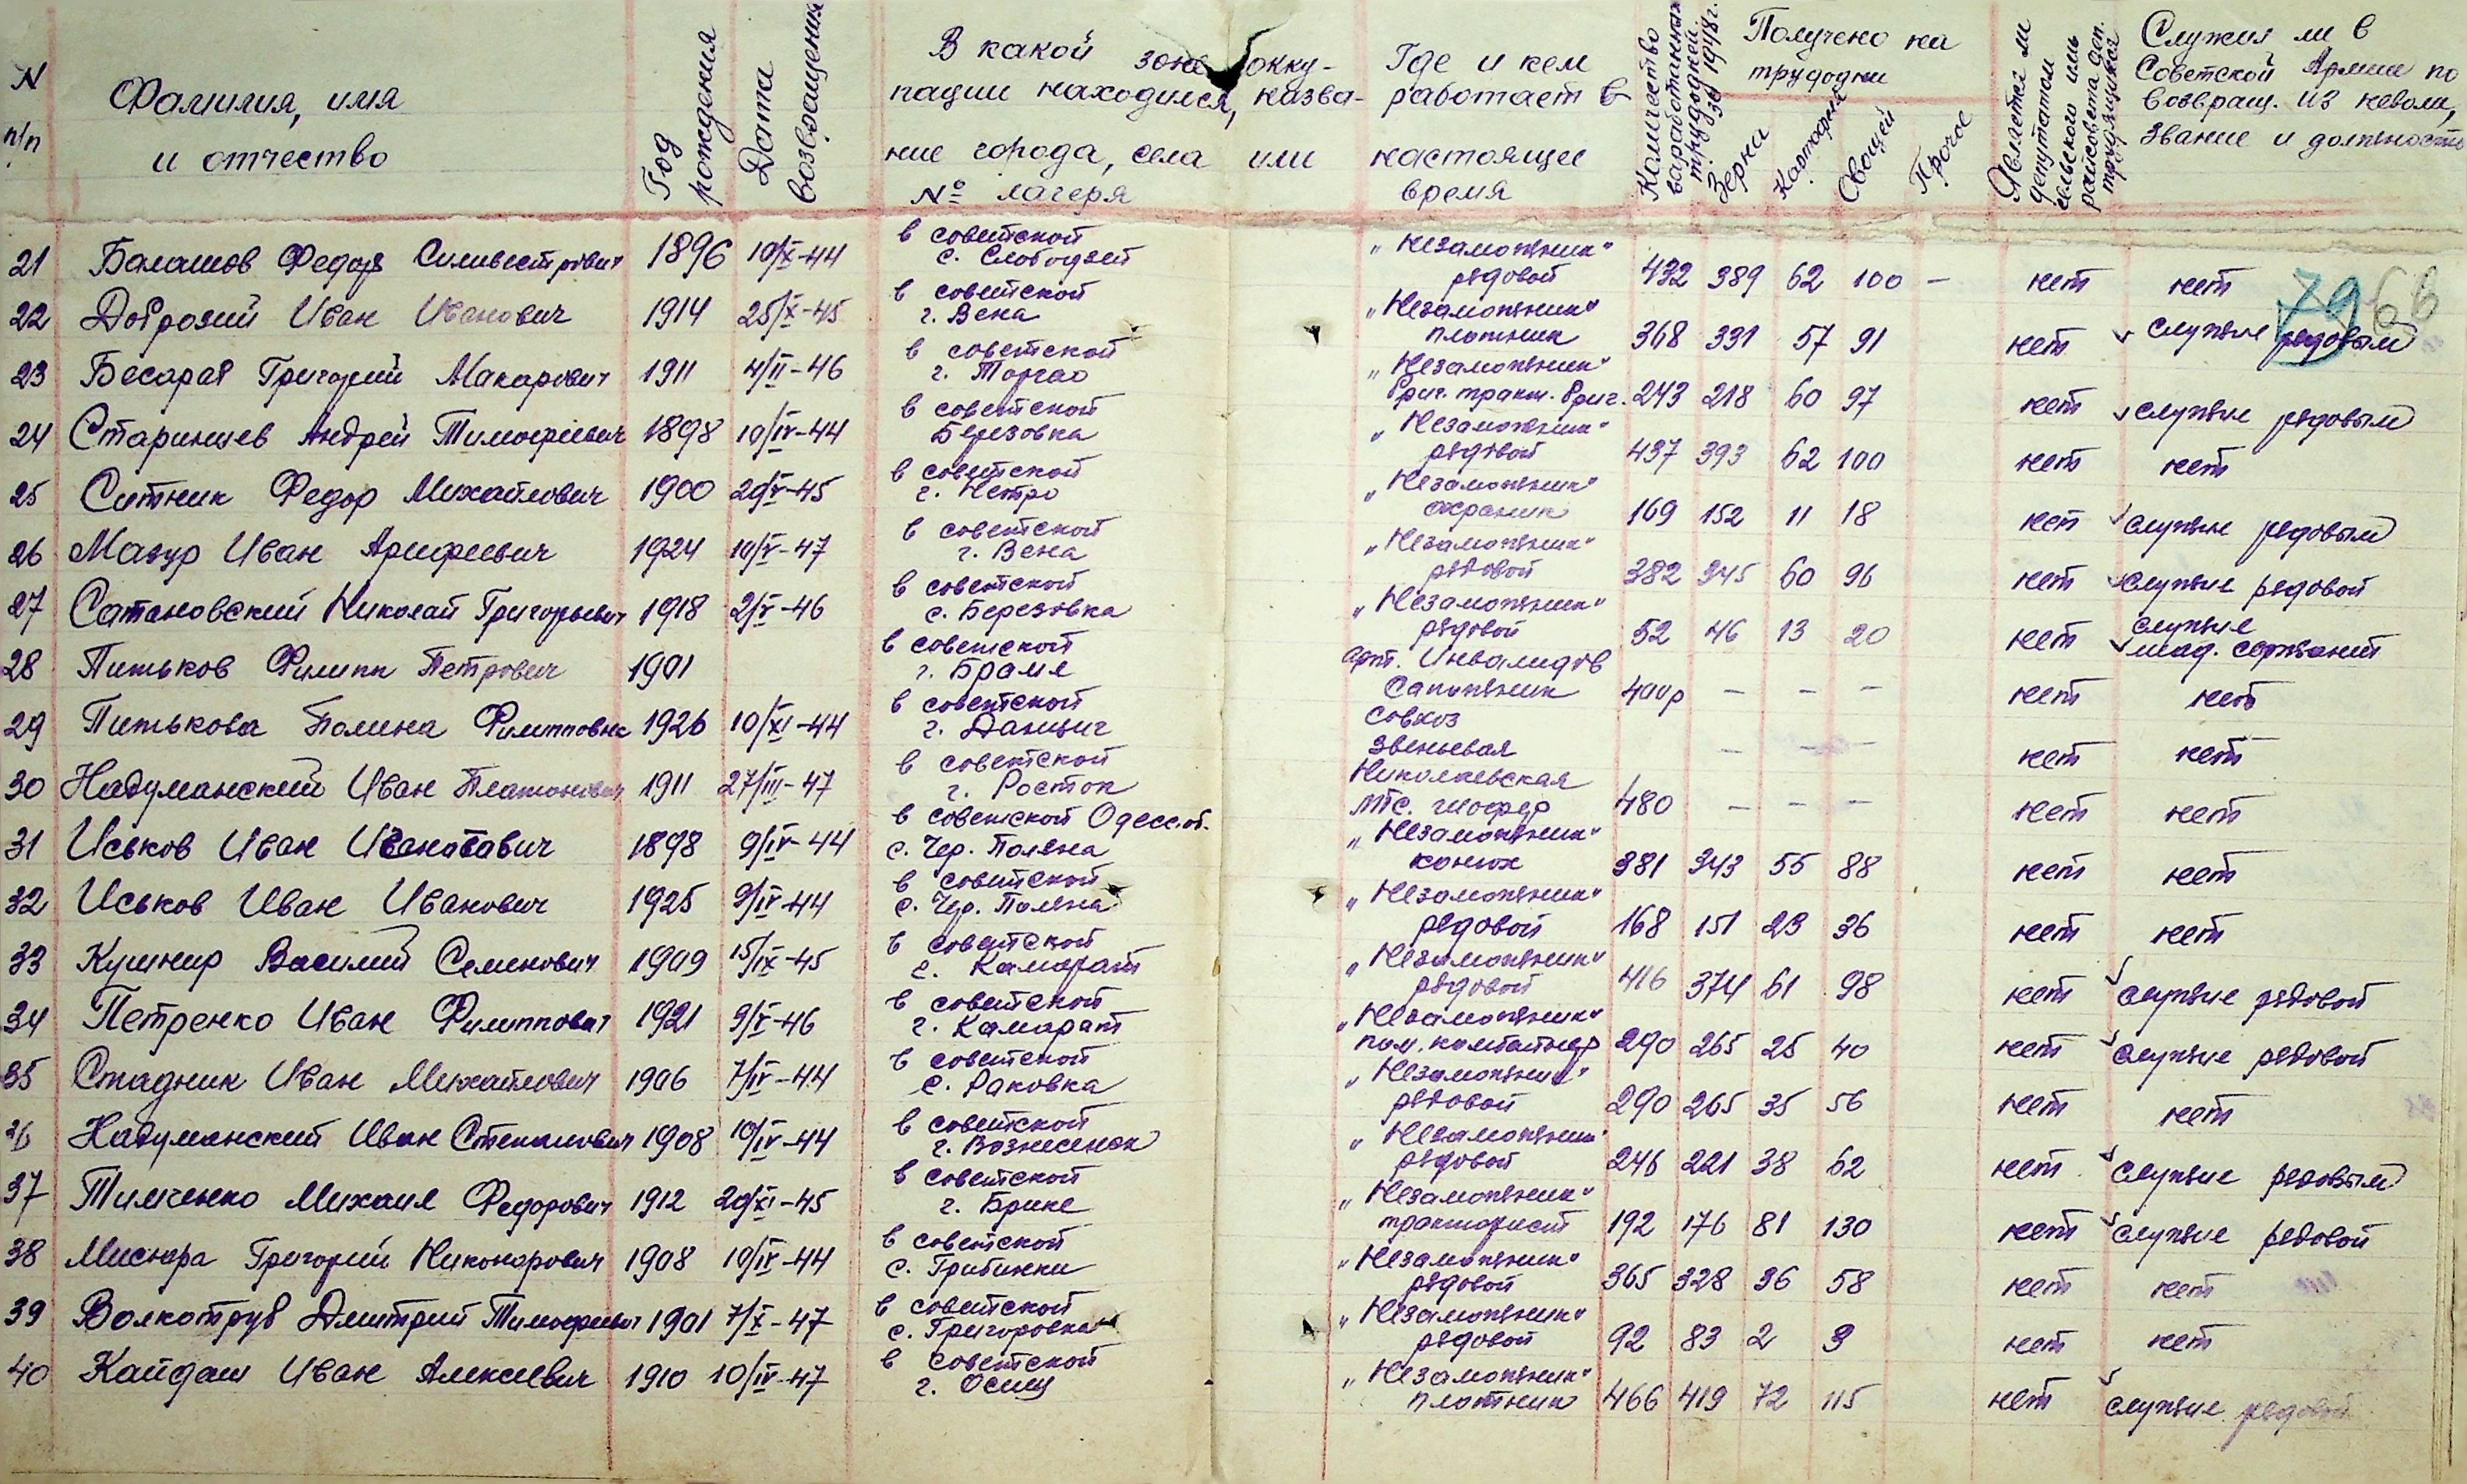 N п/п
Фамилия, имя и отчество
Год рождения
Дата возвращения
В какой зоне оккупации находился, название города, села или № лагеря
Где и кем работает в настоящее время
Количество выработанных трудодней за 1948 г.
Получено на трудодни
Зерна
Картофеля
Овощей
Прочее
Является ли депутатом сельского иль райсовета деп. трудящихся
Служил ли в Советской Армии по возвращ. из неволи, звание и должность
79 66
21 Балашов Федор Сильвестрович 1896 10/X-44 в советской с. Слободзей „Незаможник“ рядовой 432 389 62 100 — нет нет
22 Доброзий Иван Иванович 1914 25/X-45 в советской г. Вена „Незаможник“ плотник 368 331 57 91 нет служил рядовым
23 Бесараб Григорий Макарович 1911 4/II-46 в советской г. Торгао „Незаможник“ бриг. тракт. бриг. 243 218 60 97 нет служил рядовым
24 Андрей Тимофеевич 1898 10/IV-44 в советской Березовка „Незаможник“ рядовой 437 393 62 100 нет нет
25 Ситник Федор Михайлович 1900 20/V-45 в советской г. „Незаможник“ охраник 169 152 11 18 нет служил рядовым
26 Мазур Иван 1924 10/V-47 в советской г. Вена „Незаможник“ рядовой 382 345 60 96 нет служил рядовой
27 Сатановский Николай Григорьевич 1918 2/V-46 в советской с. Березовка „Незаможник“ рядовой 52 46 13 20 нет служил млад. сержант
28 Питьков Филипп Петрович 1901 в советской г. арт. Инвалидов Сапожник 400р — — — нет нет
29 Питькова Полина Филипповна 1926 10/XI-44 в советской г. Данциг совхоз звеньевая — — — нет нет
30 Надуманский Иван Платонович 1911 27/III-47 в советской г. Росток Николаевская мтс. шофер 480 — — — нет нет
31 Иськов Иван 1898 9/IV-44 в советской Одесс.об. с. Чер. Поляна „Незаможник“ конюх 381 343 55 88 нет нет
32 Иськов Иван Иванович 1925 9/IV-44 в советской с. Чер. Поляна „Незаможник“ рядовой 168 151 23 36 нет нет
33 Кушнир Василий Семенович 1909 15/IX-45 в советской с. Камарат „Незаможник“ рядовой 416 374 61 98 нет служил рядовой
34 Петренко Иван Филиппович 1921 9/V-46 в советской г. Камарат „Незаможник“ пом. комбайнер 290 265 25 40 нет служил рядовой
35 Стадник Иван Михайлович 1906 7/IV-44 в советской с. Раковка „Незаможник“ рядовой 290 265 35 56 нет нет
36 Надуманский Иван Степанович 1908 10/IV-44 в советской г. Вознесенск „Незаможник“ рядовой 246 221 38 62 нет служил рядовым
37 Тимченко Михаил Федорович 1912 20/XI-45 в советской г. „Незаможник“ тракторист 192 176 81 130 нет служил рядовой
38 Мисюра Григорий Никонорович 1908 10/IV-44 в советской с. Трибинки „Незаможник“ рядовой 365 328 36 58 нет нет
39 Волкотруб Дмитрий Тимофеевич 1901 7/X-47 в советской с. Григоровка „Незаможник“ рядовой 92 83 2 3 нет нет
40 Кайдаш Иван Алексеевич 1910 10/IV-47 в советской г. „Незаможник“ плотник 466 419 72 115 нет служил рядовой